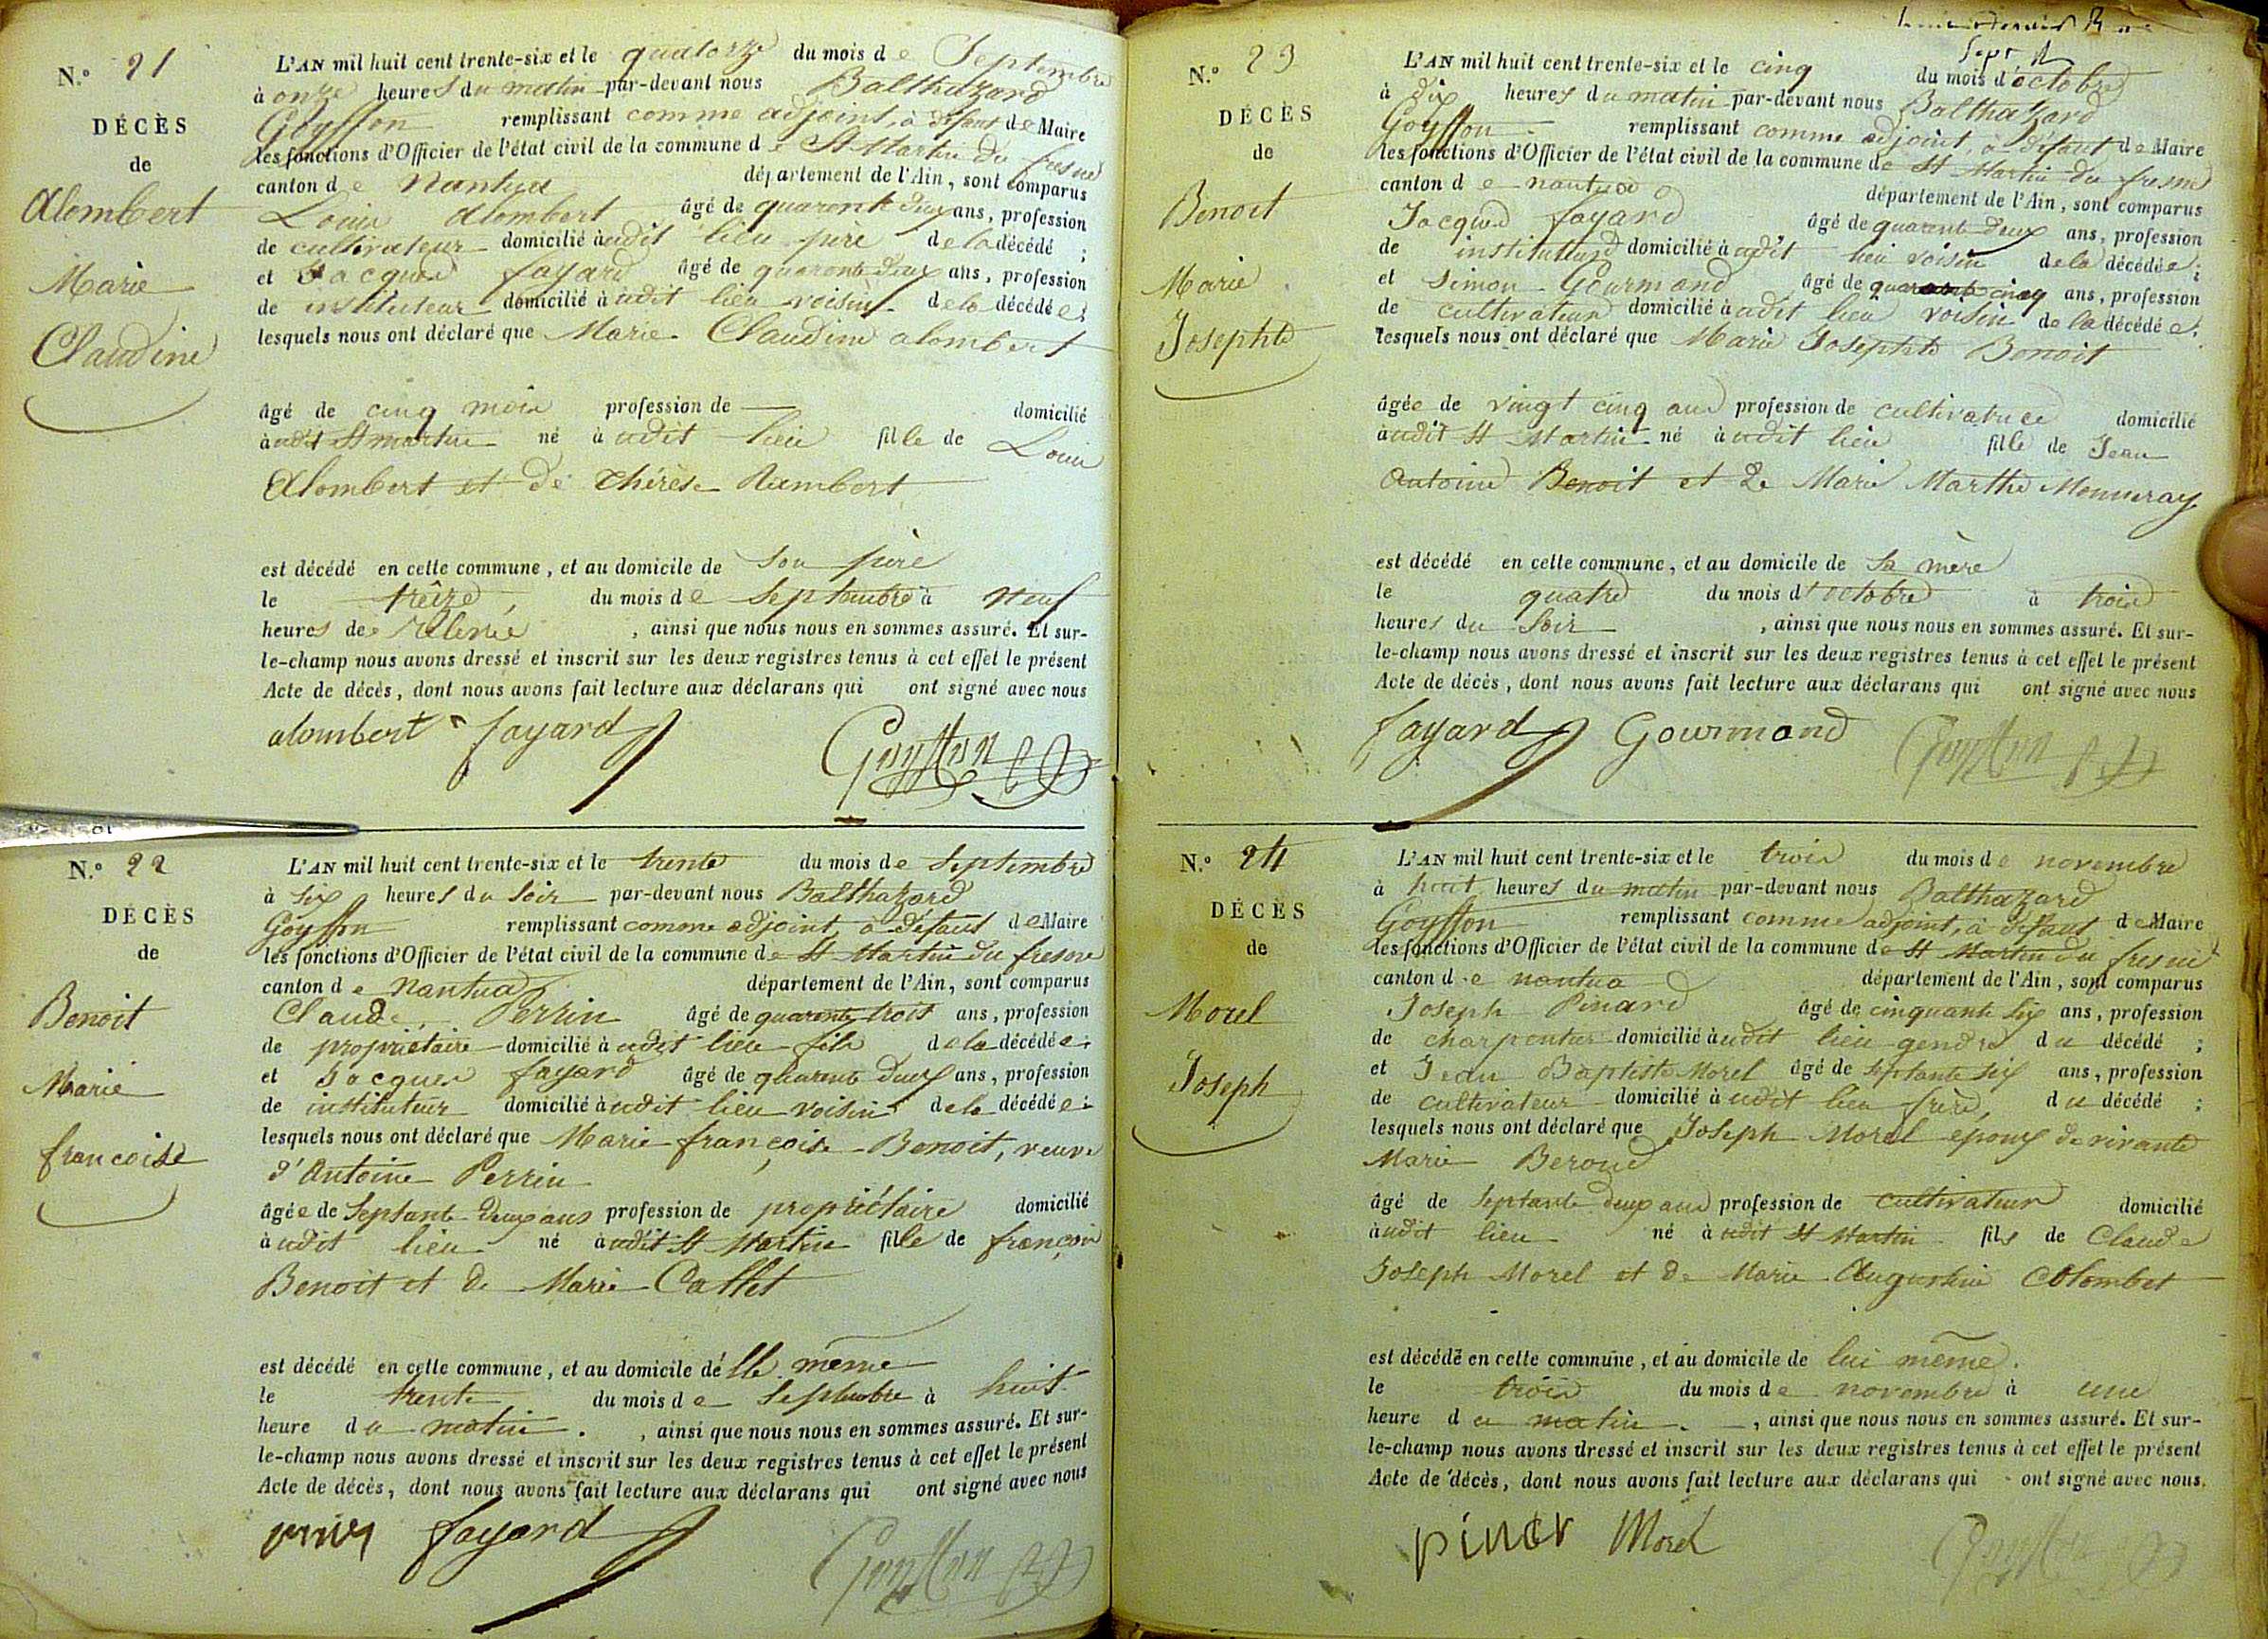 N.° 21
DÉCÈS
de
Alombert
Marie
Claudine
L'AN mil huit cent trente-six et le quatorze du mois de Septembre
à onze heures du matin par-devant nous Balthazard
Goyffon remplissant comme adjoint, à défaut de Maire
les fonctions d'Officier de l'état civil de la commune de St Martin du fresne
canton de Nantua département de l'Ain, sont comparus
Louis Alombert âgé de quarante deux ans, profession
de cultivateur domicilié àudit lieu père de la décédé ;
et Jacques fayard âgé de quarante deux ans, profession
de instituteur domicilié àudit lieu voisin de la décédée ;
lesquels nous ont déclaré que Marie Claudine alombert
âgé de cinq mois profession de — domicilié
àudit St martin né àudit lieu fille de Louis
Alombert et de thérèse Humbert
est décédé en cette commune, et au domicile de son père
le treize, du mois de Septembre à neuf
heures de , ainsi que nous nous en sommes assuré. Et sur-
le-champ nous avons dressé et inscrit sur les deux registres tenus à cet effet le présent
Acte de décès, dont nous avons fait lecture aux déclarans qui ont signé avec nous
alombert fayard Goyffon
N.° 22
DÉCÈS
de
Benoit
Marie
francoise
L'AN mil huit cent trente-six et le trente du mois de Septembre
à six heures du soir par-devant nous Balthazard
Goyffon remplissant comme adjoint, à défaut de Maire
les fonctions d'Officier de l'état civil de la commune de St Martin du fresne
canton de Nantua département de l'Ain, sont comparus
Claude Perrin âgé de quarante trois ans, profession
de propriétaire domicilié àudit lieu fils de la décédée ;
et Jacques fayard âgé de quarante deux ans, profession
de instituteur domicilié àudit lieu voisin de la décédée ;
lesquels nous ont déclaré que Marie françoise Benoit, veuve
d'Antoine Perrin
âgée de Septante deux ans profession de propriétaire domicilié
àudit lieu né àudit St Martin fille de françois
Benoit et de Marie Callet
est décédé en cette commune, et au domicile d'elle même
le trente du mois de Septembre à huit
heure du matin. , ainsi que nous nous en sommes assuré. Et sur-
le-champ nous avons dressé et inscrit sur les deux registres tenus à cet effet le présent
Acte de décès, dont nous avons fait lecture aux déclarans qui ont signé avec nous
fayard Goyffon
Sept
N.° 23
DÉCÈS
de
Benoit
Marie
Josephte
L'AN mil huit cent trente-six et le cinq du mois d'octobre
à dix heures du matin par-devant nous Balthazard
Goyffon remplissant comme adjoint, à défaut de Maire
les fonctions d'Officier de l'état civil de la commune de St Martin du fresne
canton de nantua département de l'Ain, sont comparus
Jacques fayard âgé de quarante deux ans, profession
de instituteur domicilié àudit lieu voisin de la décédée ;
et Simon Gourmand âgé de quarante cinq ans, profession
de cultivateur domicilié àudit lieu voisin de la décédée ;
lesquels nous ont déclaré que Marie Josephte Benoit
âgée de vingt cinq ans profession de cultivatrice domicilié
àudit St Martin né àudit lieu fille de Jean
Antoine Benoit et de Marie Marthe Monneray
est décédé en cette commune, et au domicile de sa mère
le quatre du mois d'octobre à trois
heures du soir , ainsi que nous nous en sommes assuré. Et sur-
le-champ nous avons dressé et inscrit sur les deux registres tenus à cet effet le présent
Acte de décès, dont nous avons fait lecture aux déclarans qui ont signé avec nous
fayard Gourmand Goyffon
N.° 24
DÉCÈS
de
Morel
Joseph
L'AN mil huit cent trente-six et le trois du mois de novembre
à huit heures du matin par-devant nous Balthazard
Goyffon remplissant comme adjoint, à défaut de Maire
les fonctions d'Officier de l'état civil de la commune de St Martin du fresne
canton de nantua département de l'Ain, sont comparus
Joseph Pinard âgé de cinquante six ans, profession
de charpentier domicilié àudit lieu gendre du décédé ;
et Jean Baptiste Morel âgé de septante six ans, profession
de cultivateur domicilié àudit lieu frère, du décédé ;
lesquels nous ont déclaré que Joseph Morel epoux de vivante
Marie Beroud
âgé de Septante deux ans profession de cultivateur domicilié
àudit lieu né àudit St Martin fils de Claude
Joseph Morel et de Marie Augustine Colombet
est décédé en cette commune, et au domicile de lui même.
le trois du mois de novembre à une
heure du matin. , ainsi que nous nous en sommes assuré. Et sur-
le-champ nous avons dressé et inscrit sur les deux registres tenus à cet effet le présent
Acte de décès, dont nous avons fait lecture aux déclarans qui ont signé avec nous.
Morel Goyffon